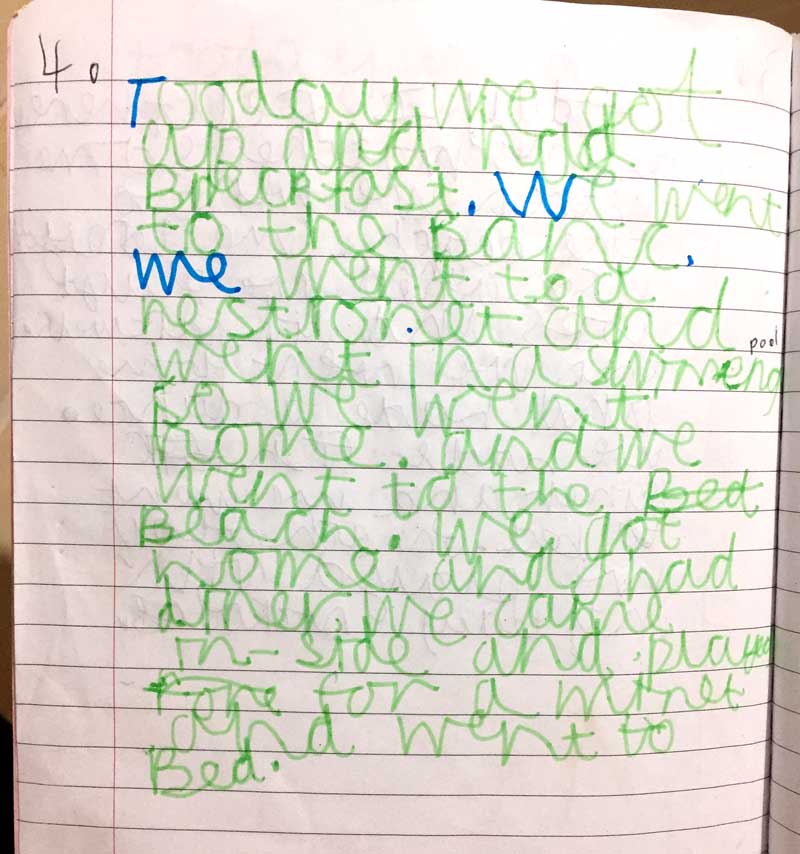 4.
Tooday we got
up and had
Breckfast. We went
to the Banc.
We went to a
restronet and
went in a swimeng pool
so we went
home. and we
went to the Bed
Beach. We got
home and had
diner. We came
in-side and played
for a minet
and went to
Bed.